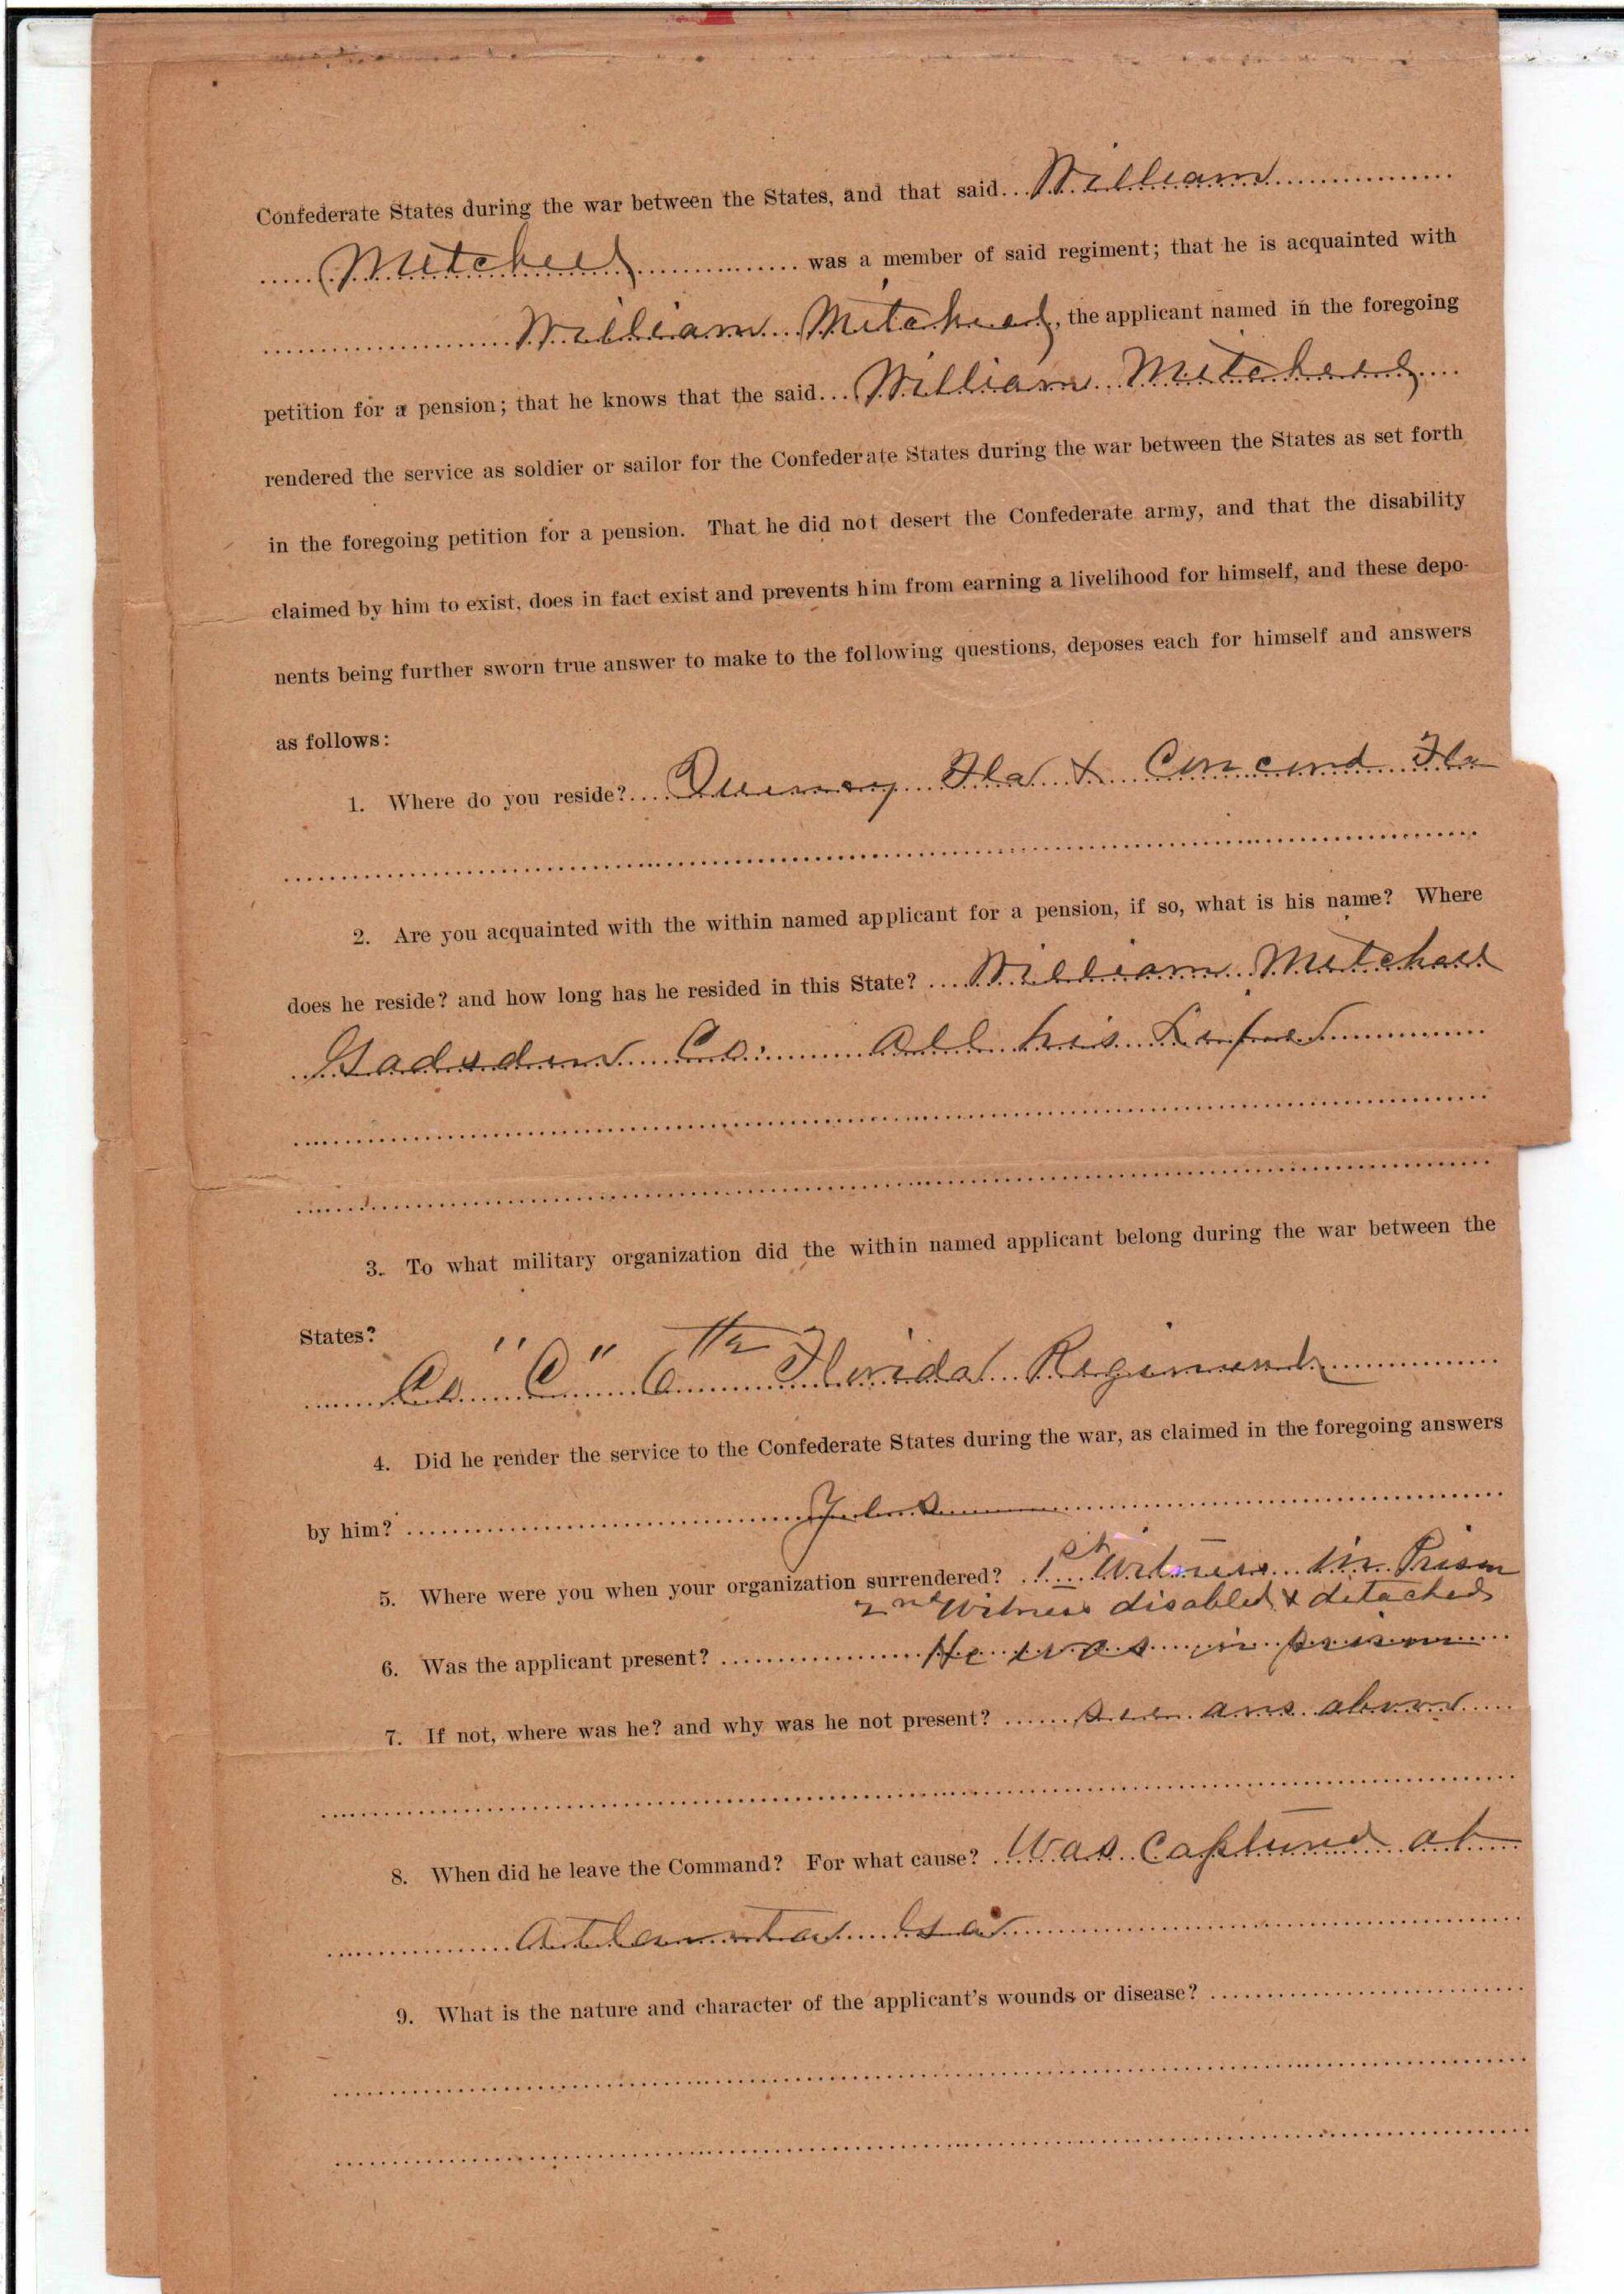 Confederate States during the war between the States, and that said William
Mitchell was a member of said regiment; that he is acquainted with
William Mitchell, the applicant named in the foregoing
petition for a pension; that he knows that the said William Mitchell
rendered the service as soldier or sailor for the Confederate States during the war between the States as set forth
in the foregoing petition for a pension. That he did not desert the Confederate army, and that the disability
claimed by him to exist, does in fact exist and prevents him from earning a livelihood for himself, and these depo-
nents being further sworn true answer to make to the following questions, deposes each for himself and answers
as follows:
1. Where do you reside? Quincy Fla & Concord Fla
2. Are you acquainted with the within named applicant for a pension, if so, what is his name? Where
does he reside? and how long has he resided in this State? William Mitchell
Gadsden Co. All his Life
3. To what military organization did the within named applicant belong during the war between the
States?
Co "C" 6th Florida Regiment
4. Did he render the service to the Confederate States during the war, as claimed in the foregoing answers
by him? Yes
5. Where were you when your organization surrendered? 1st Witness in Prison
2nd Witness disabled & detached
6. Was the applicant present? He was in prison
7. If not, where was he? and why was he not present? see ans above
8. When did he leave the Command? For what cause? Was captured at
Atlanta Ga
9. What is the nature and character of the applicant's wounds or disease?